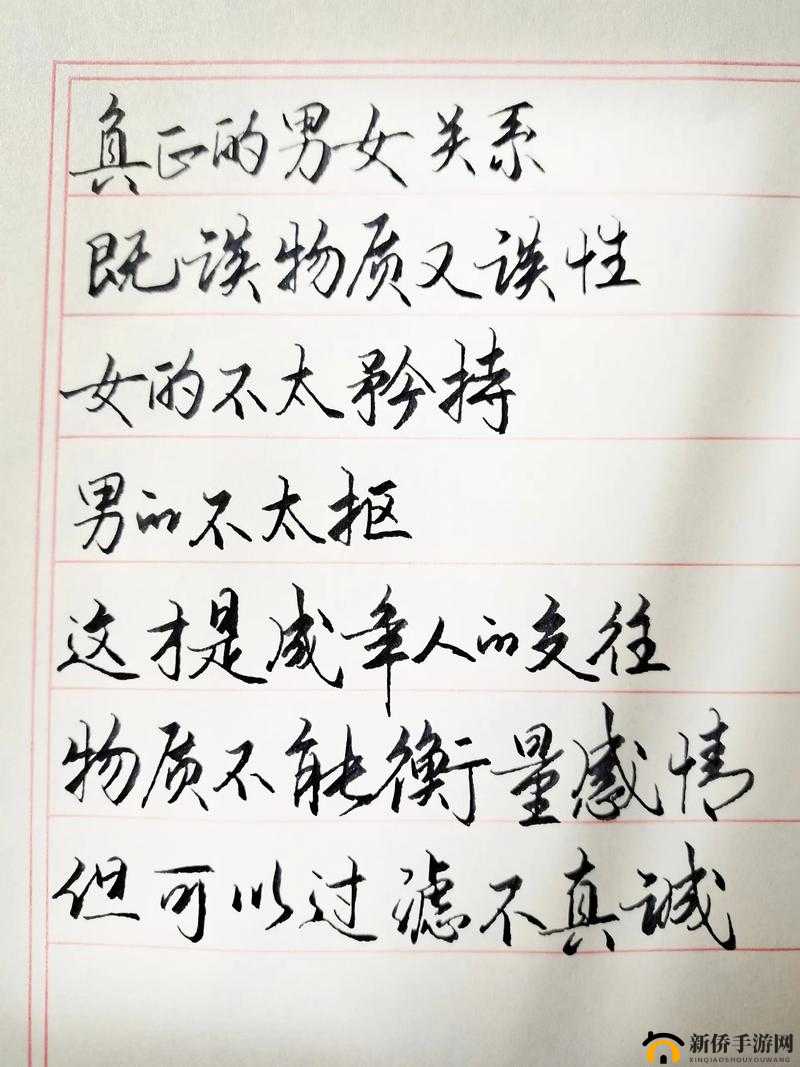 真正的男女关系
既谈物质又谈性
女的不太矜持
男的不太抠
这才是成年人的交往
物质不能衡量感情
但可以过滤不真诚
新侨手游网
XINQIAOSHOUYOUWANG